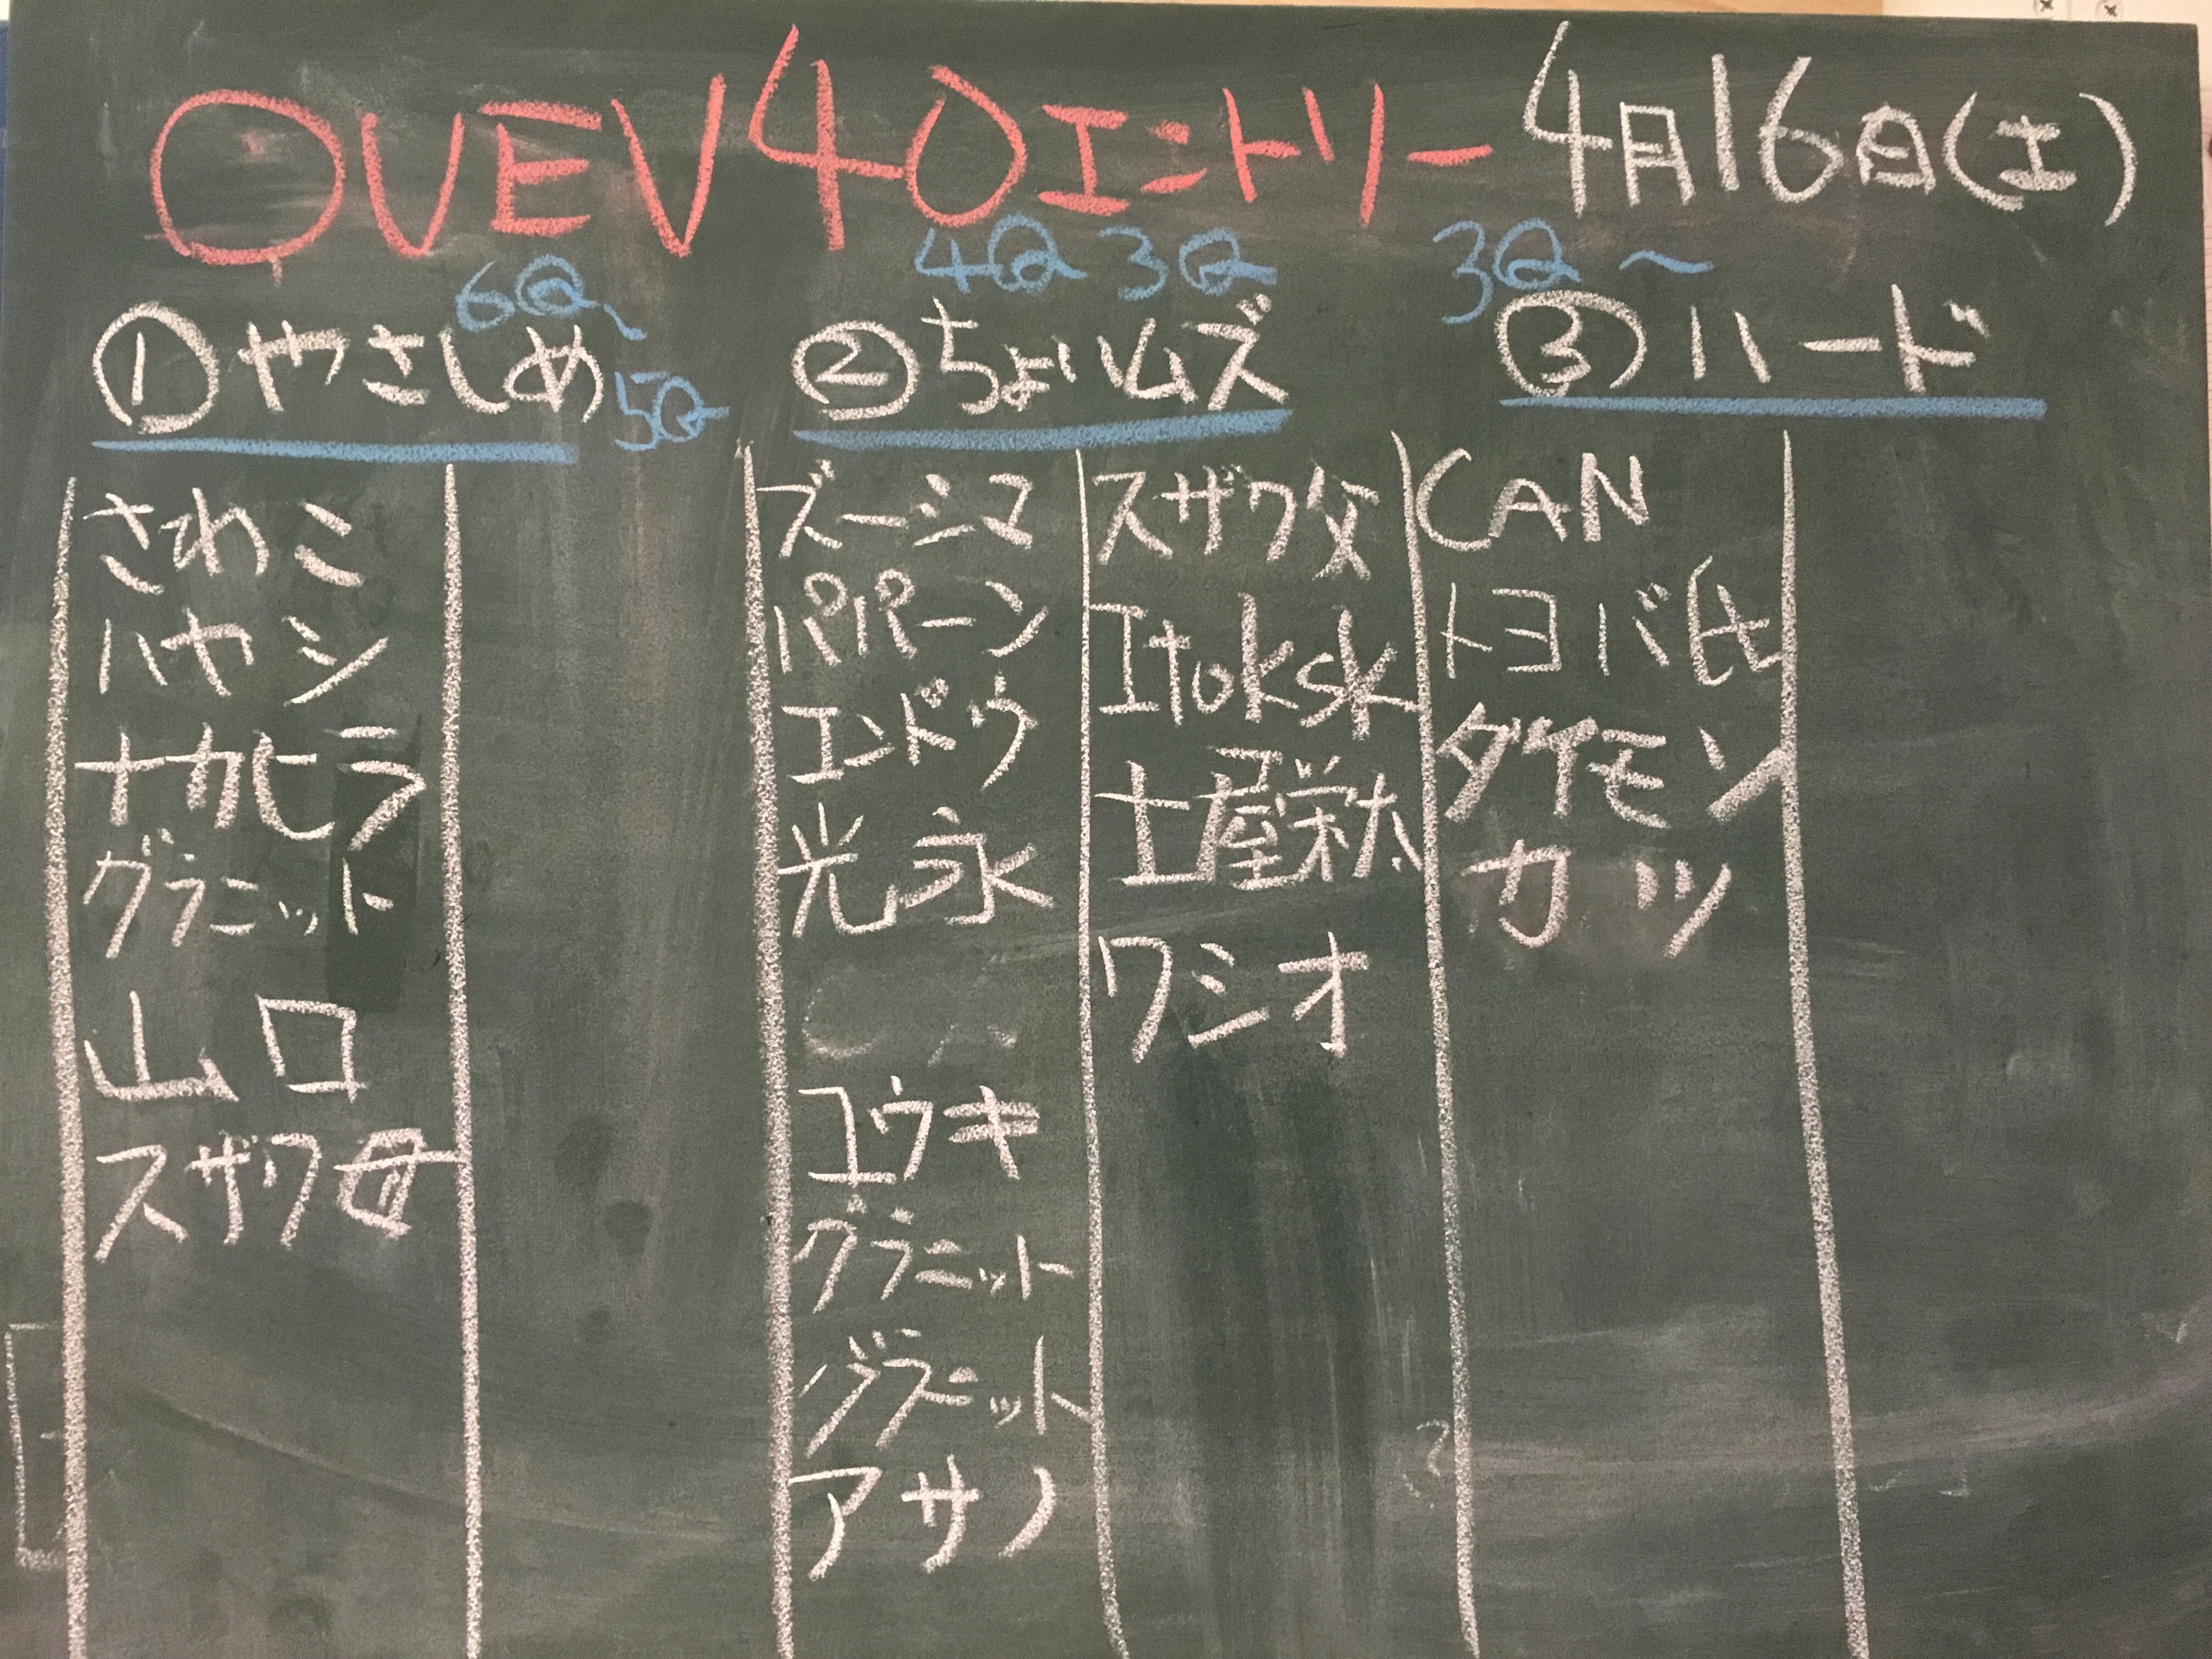 OUEV40エントリー 4月16日(土)
6Q~ 5Q
①やさしめ
さわこ
ハヤシ
ナカヒラ
グラニット
山口
スザワ母
4Q 3Q
②ちょいムズ
ズーシマ
パパーン
エンドウ
光永
ユウキ
グラニット
グラニット
アサノ
スザワ父
Itoksk
土屋栄太
ワシオ
3Q~
③ハード
CAN
トヨバ氏
ダイモン
カツ